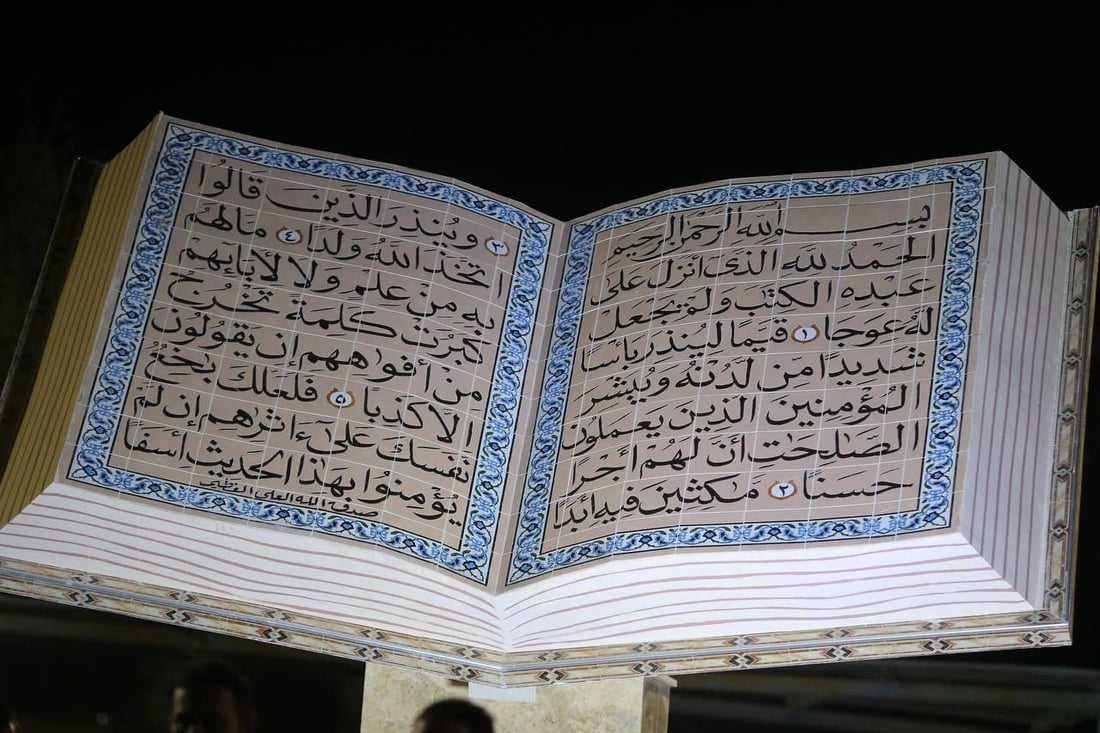 بسم الله الرحمن الرحيم
الحمد لله الذي أنزل على
عبده الكتب ولم يجعل
له عوجا ۱ قيما لينذر بأسا
شديدا من لدنه ويبشر
المؤمنين الذين يعملون
الصلحت أن لهم أجرا
حسنا ۲ مكثين فيه أبدا
۳ وينذر الذين قالوا
اتخذ الله ولدا ٤ مالهم
به من علم ولا لابائهم
كبرت كلمة تخرج
من أفواههم إن يقولون
إلا كذبا ۵ فلعلك بخع
نفسك على ءاثرهم إن لم
يؤمنوا بهذا الحديث أسفا
صدق الله العلي العظيم